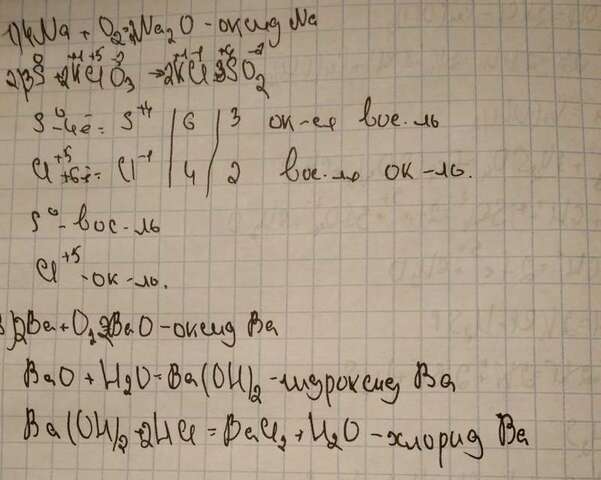 1) 4Na + O2 = 2Na2O - оксид Na
2) 3S⁰ + 2K⁺¹Cl⁺⁵O3⁻² → 2K⁺¹Cl⁻¹ 3S⁺⁴O2⁻²
S⁰ -4ē = S⁺⁴ | 6 | 3 ок-ся вос-ль
Cl⁺⁵ +6ē = Cl⁻¹ | 4 | 2 вос-ль ок-ль.
S⁰ - вос-ль
Cl⁺⁵ - ок-ль.
3) 2Ba + O2 2BaO - оксид Ba
BaO + H2O = Ba(OH)2 - гидроксид Ba
Ba(OH)2 + 2HCl = BaCl2 + H2O - хлорид Ba